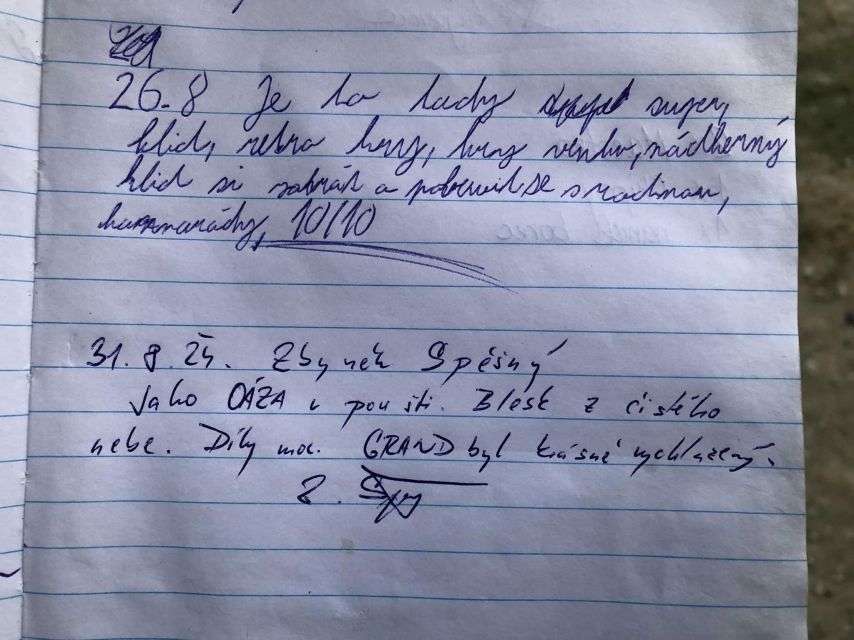 26.8 Je to tady super,
klid, retro hry, hry venku, nádherný
klid si zahrát a pobavit se s rodinou,
kammarády, 10/10
31.8.24. Zbyněk Spěšný
Jako OÁZA v poušti. Blesk z čistého
nebe. Díky moc. GRAND byl krásně vychlazený.
Z. Spy